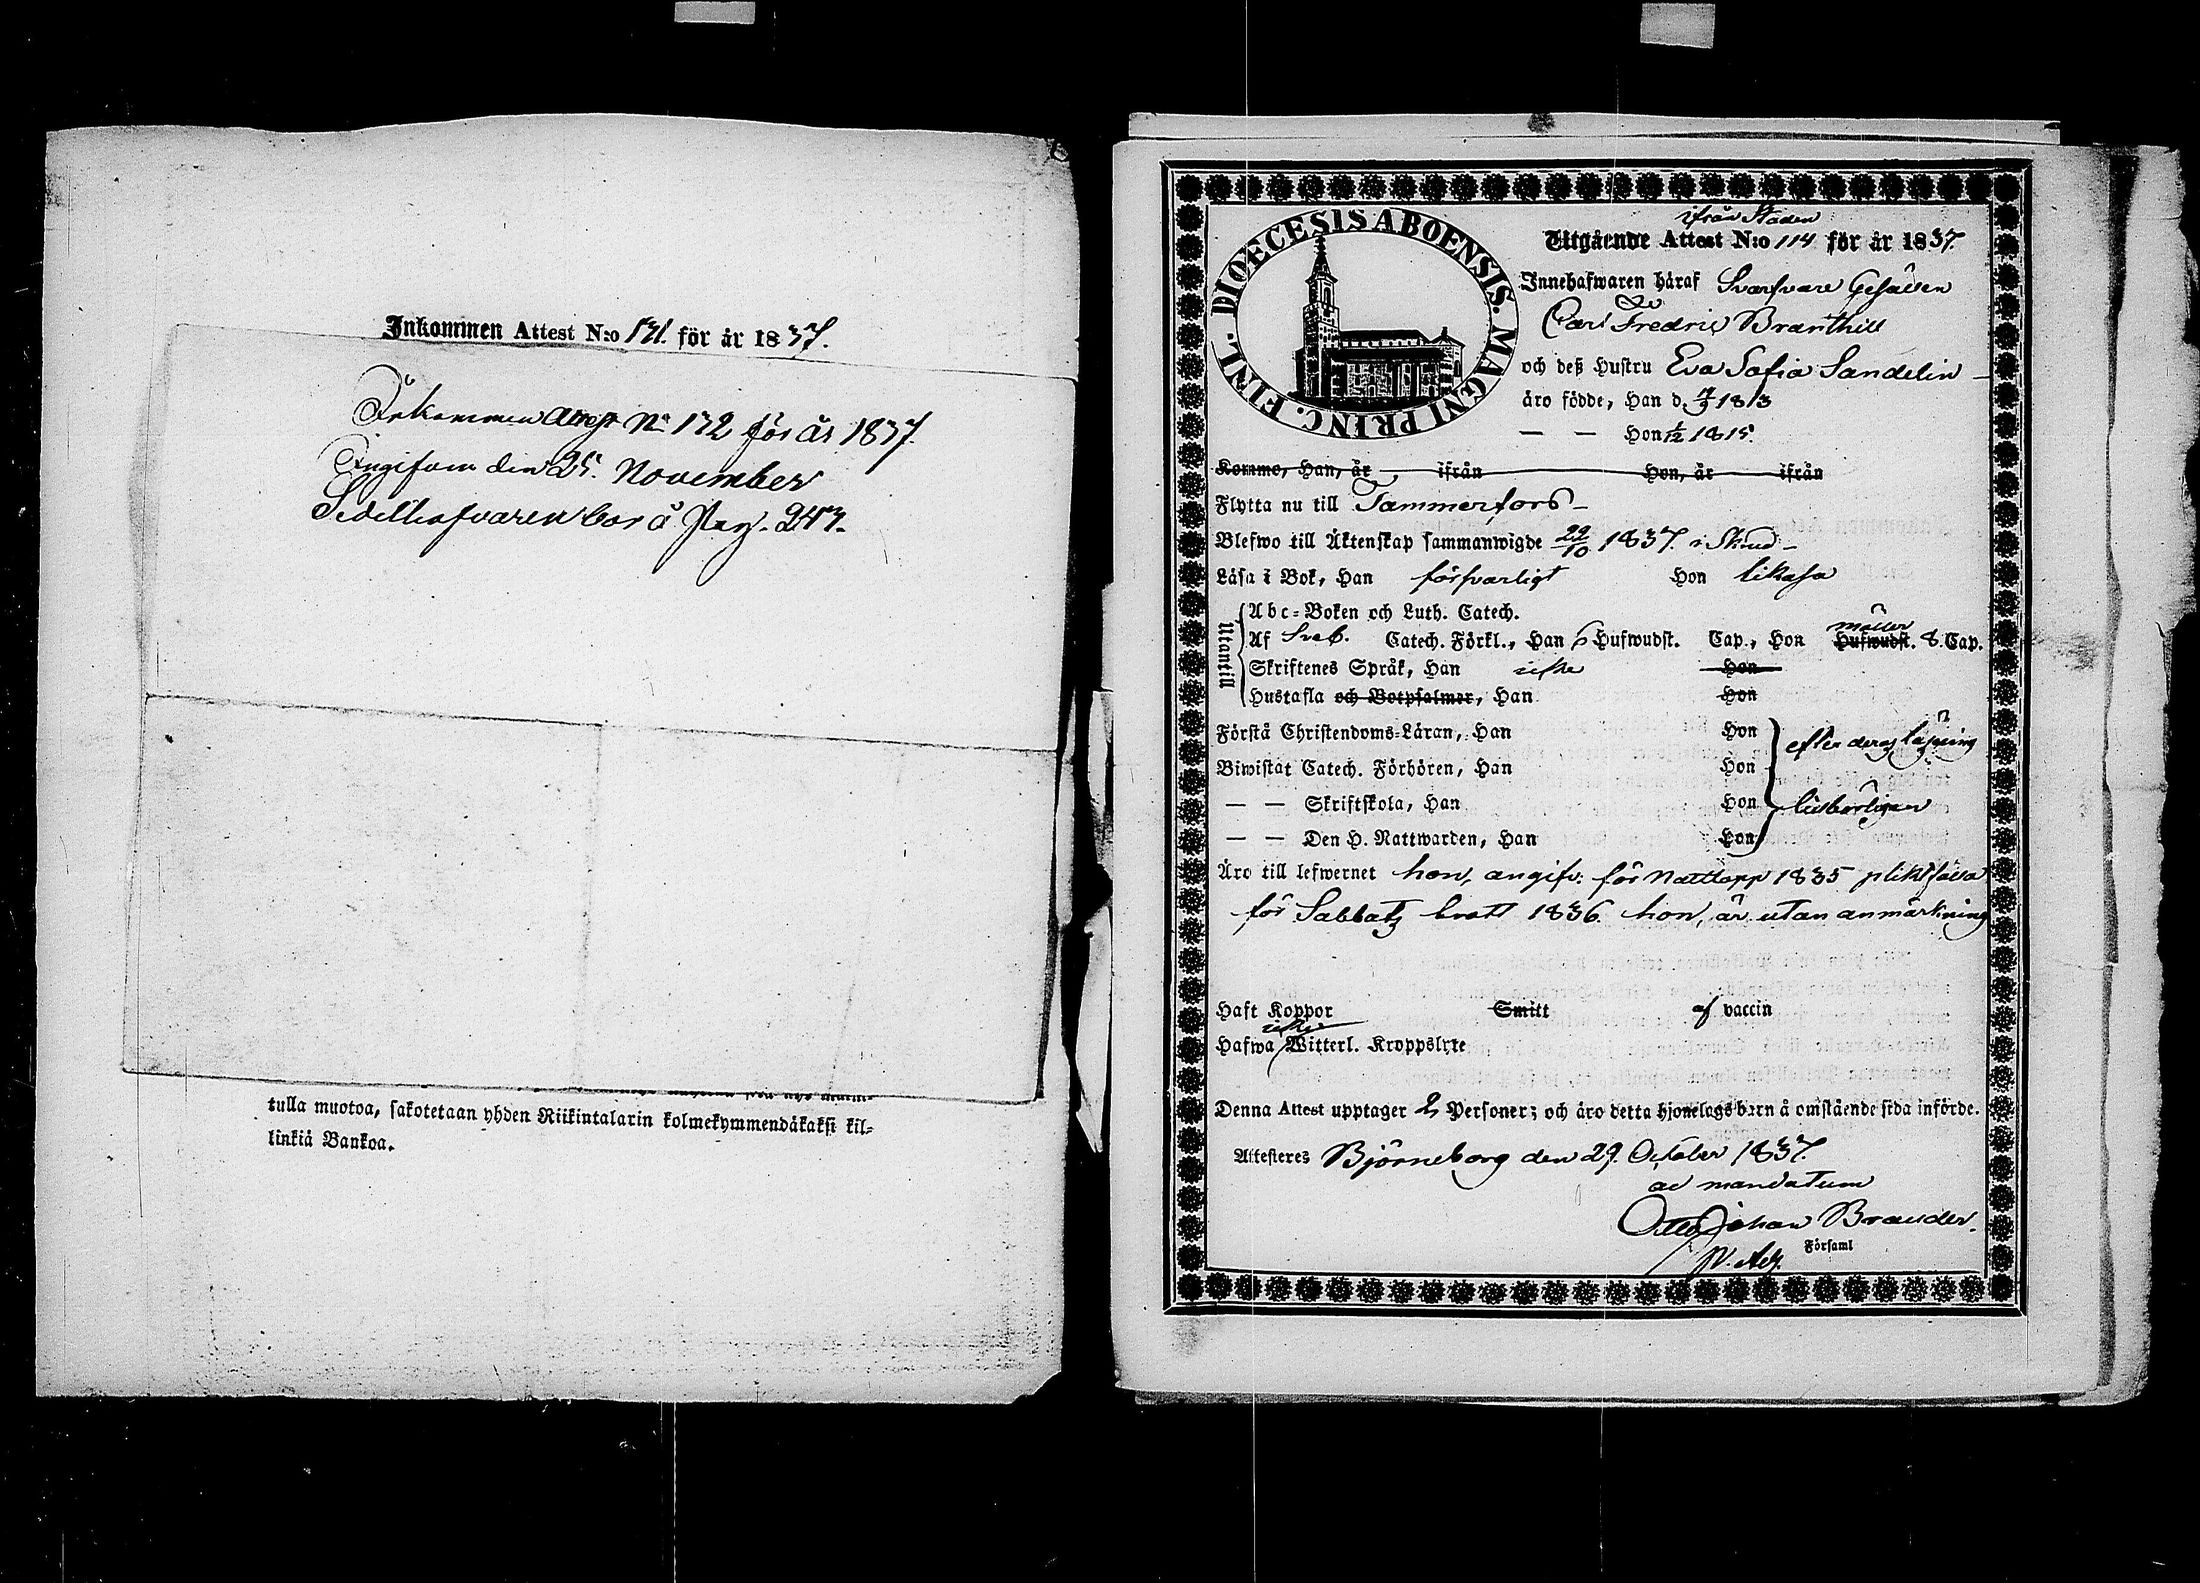 Inkommen Attest N:o 131. för år 1837.
Inkommen Attest No 132 för år 1837.
Ingifven den 25. November
Sedelhafvaren bor å Pag. 243.
tulla muotoa, sakotetaan yhden Riikintalarin kolmekymmendäkaksi kil-
linkiä Bankoa.
DIOECESIS ABOENSIS. MAGNI PRINC. FINL.
ifrån Staden
Utgående Attest N:o 114 för år 1837.
Innehafwaren häraf Svarfvare Gesällen
Carl Fredric Branthill
och deß Hustru Eva Sofia Sandelin
äro födde, Han d. 1813
— — Hon 1/12 1815.
Komme, Han, år ifrån Hon, år ifrån
Flytta nu till Tammerfors
Blefwo till Äktenskap sammanwigde 22/10 1837.
Läsa i Bok, Han försvarligt Hon likaså
Utantill
Abc-Boken och Luth. Catech.
Af Sveb. Catech. Förkl., Han 6 Hufwudst. Cap., Hon Hufwudst. 8. Cap.
Skriftenes Språk, Han icke Hon
Hustafla och Botpsalmer, Han Hon
Förstå Christendoms-Läran, Han Hon
efter deras läsning
Biwistat Catech. Förhören, Han Hon
— — Skriftskola, Han Hon
— — Den H. Nattwarden, Han Hon
Äro till lefwernet han, angifv: för Nattlopp 1835 pliktfälld
för Sabbats brott 1836. hon, är utan anmärkning
Haft Koppor Smitt af vaccin
icke
Hafwa Witterl. Kroppslyte
Denna Attest upptager 2 Personer; och äro detta hjonelags barn å omstående sida införde.
Attesteres Björneborg den 29. October 1837.
ad mandatum
Otto Johan Brander.
Församl